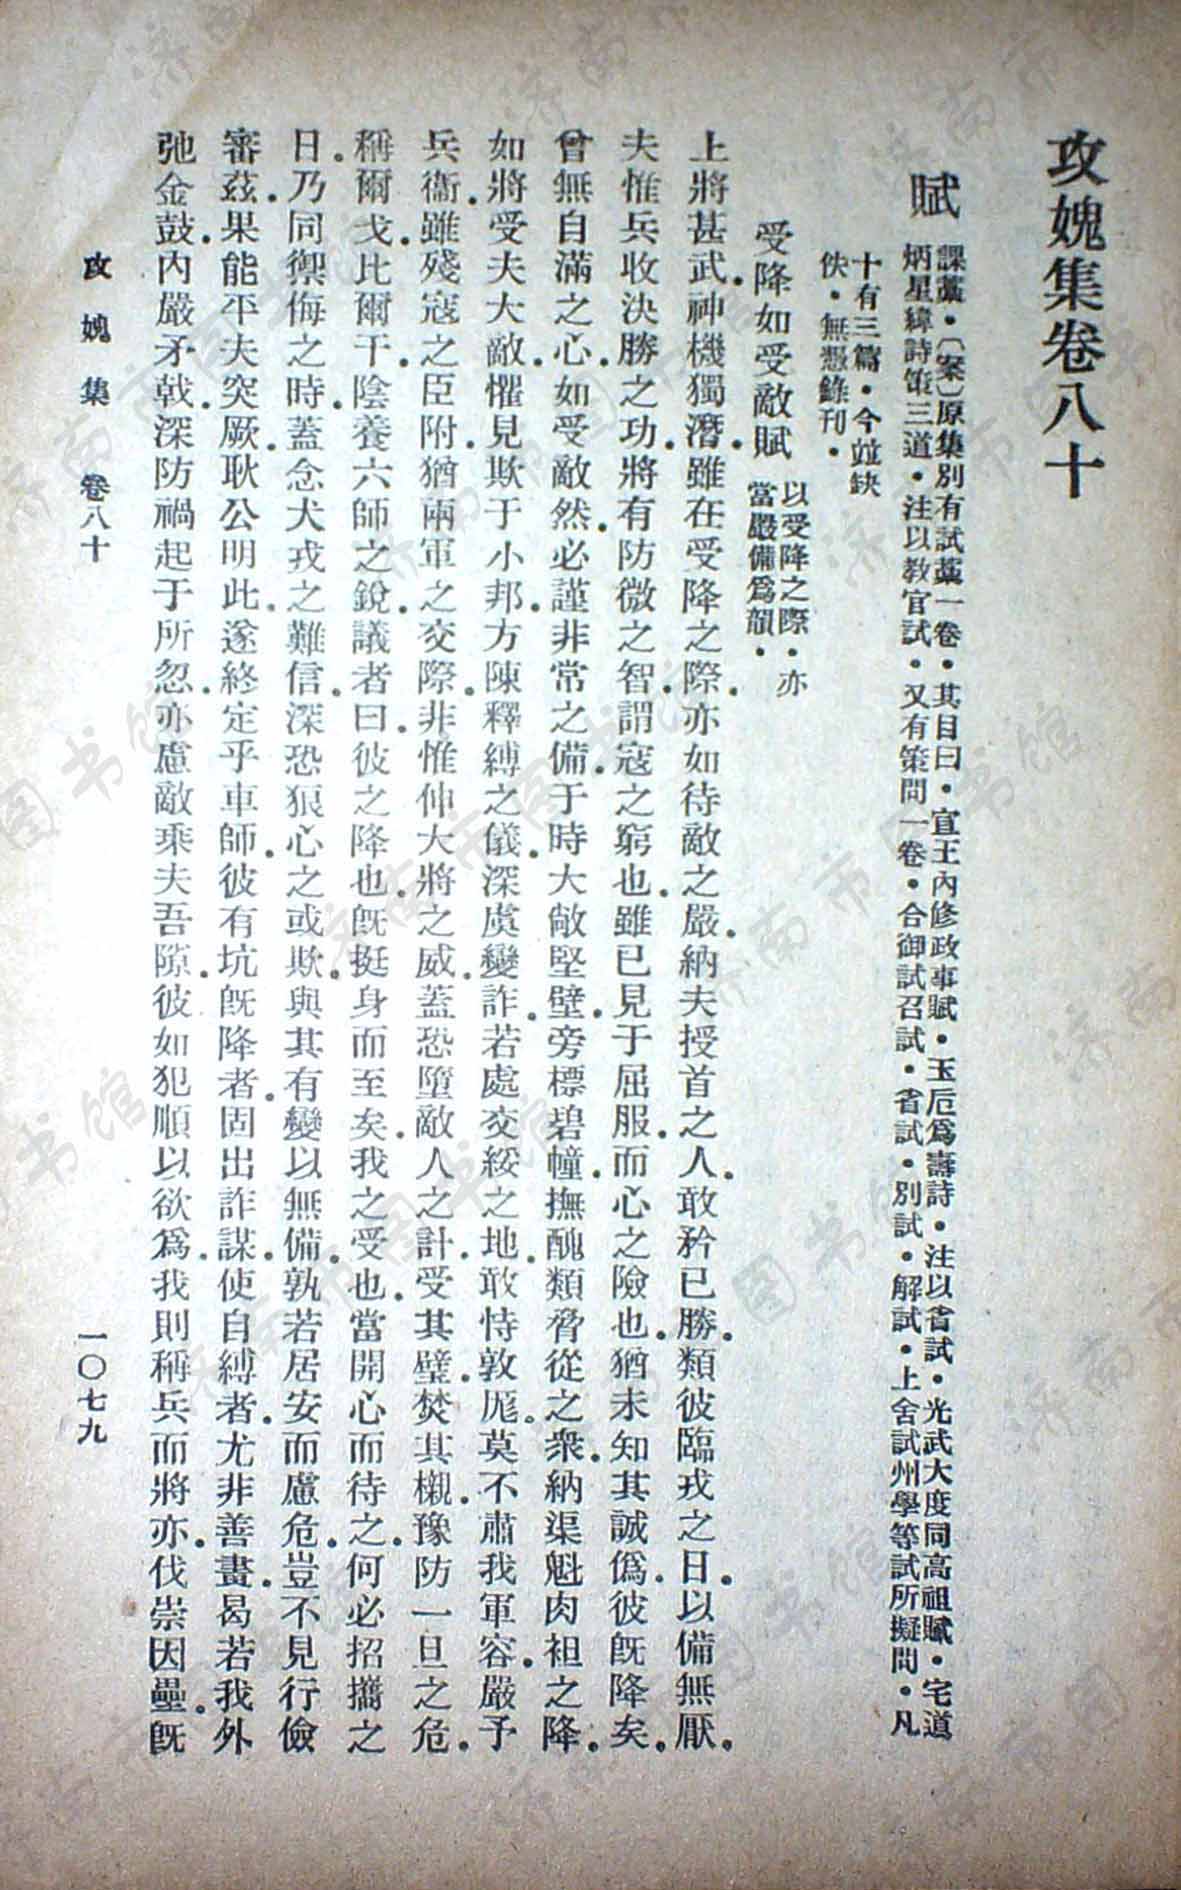 攻媿集卷八十
賦
課藁·〔案〕原集別有試藁一卷·其目曰·宣王內修政事賦·玉卮爲壽詩·注以省試·光武大度同高祖賦·宅道
炳星緯詩策三道·注以教官試·又有策問一卷·合御試召試·省試·別試·解試·上舍試州學等試所擬問·凡
十有三篇·今竝缺
佚·無憑錄刊·
受降如受敵賦
以受降之際·亦
當嚴備爲韻·
上將甚武·神機獨潛·雖在受降之際·亦如待敵之嚴·納夫授首之人·敢矜已勝·類彼臨戎之日·以備無厭·
夫惟兵收決勝之功·將有防微之智·謂寇之窮也·雖已見于屈服·而心之險也·猶未知其誠僞·彼旣降矣·
曾無自滿之心·如受敵然·必謹非常之備·于時大敞堅壁·旁標碧幢·撫醜類脅從之衆·納渠魁肉袒之降·
如將受夫大敵·懼見欺于小邦·方陳釋縛之儀·深虞變詐·若處交綏之地·敢恃敦厖·莫不肅我軍容·嚴予
兵衞·雖殘寇之臣附·猶兩軍之交際·非惟伸大將之威·蓋恐墮敵人之計·受其璧·焚其櫬·豫防一旦之危·
稱爾戈·比爾干·陰養六師之銳·議者曰·彼之降也·旣挺身而至矣·我之受也·當開心而待之·何必招攜之
日·乃同禦侮之時·蓋念犬戎之難信·深恐狼心之或欺·與其有變以無備·孰若居安而慮危·豈不見行儉
審茲·果能平夫突厥·耿公明此·遂終定乎車師·彼有坑旣降者·固出詐謀·使自縛者·尤非善畫·曷若我外
弛金鼓·內嚴矛戟·深防禍起于所忽·亦慮敵乘夫吾隙·彼如犯順以欲爲·我則稱兵而將亦·伐崇因壘·旣
攻媿集 卷八十 一〇七九